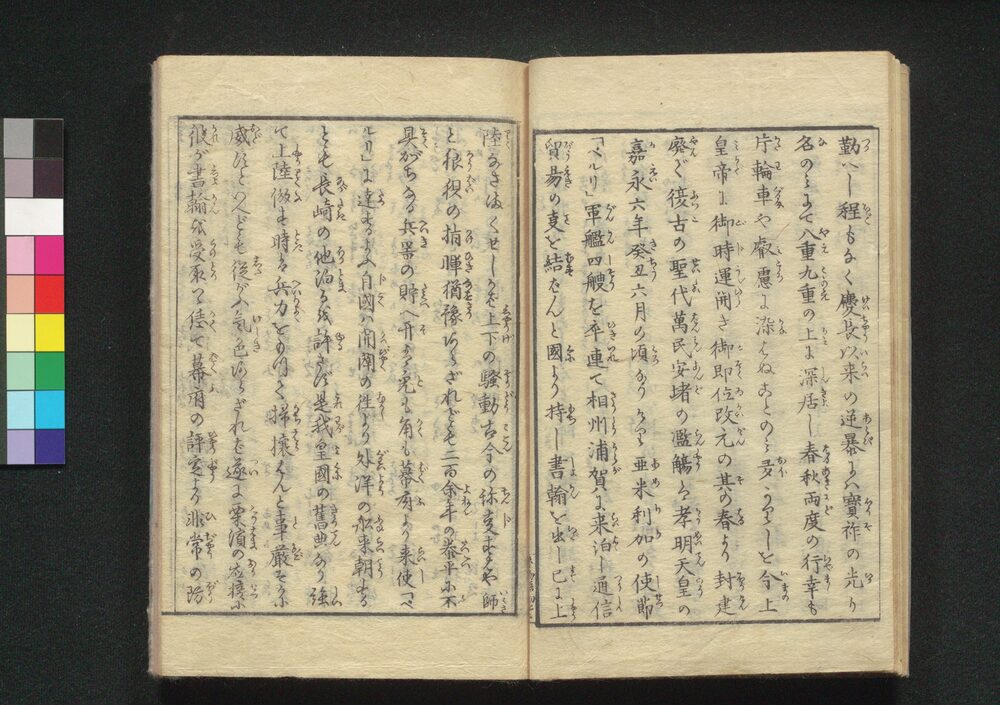 勤へし程もなく慶長以来の逆暴より寳祚の光り
名のミにて八重九重の上に深居し春秋両度の行幸も
片輪車や叡慮に染はぬことのミ多かりしを今上
皇帝に御時運開き御即位改元の其の春より封建
廃が復古の聖代萬民安堵の濫觴は孝明天皇の
嘉永六年癸丑六月の頃なりけり亜米利加の使節
「ペルリ」軍艦四艘を卒連て相州浦賀に来泊し通信
貿易の叓を結ばんと國より持し書翰を出し已に上
陸なさまくせしかば上下の騒動古今の珍叓まさや師
と狼狽の指揮猶豫あらざれども二百余年の泰平に不
具がちなる兵器の貯へ兎も角も幕府より来使「ペ
ルリ」に達するよふ自國ハ開闢の往より外洋の船来朝する
とも長崎の他泊るを許さず是我皇國の舊典なり強
て上陸做す時は兵力をもつて掃攘んと事厳そかに
威すといへども従がふ気色あらざれば遂に栗濱の應接に
彼が書翰を受取つ偖て幕府の評定より非常の防